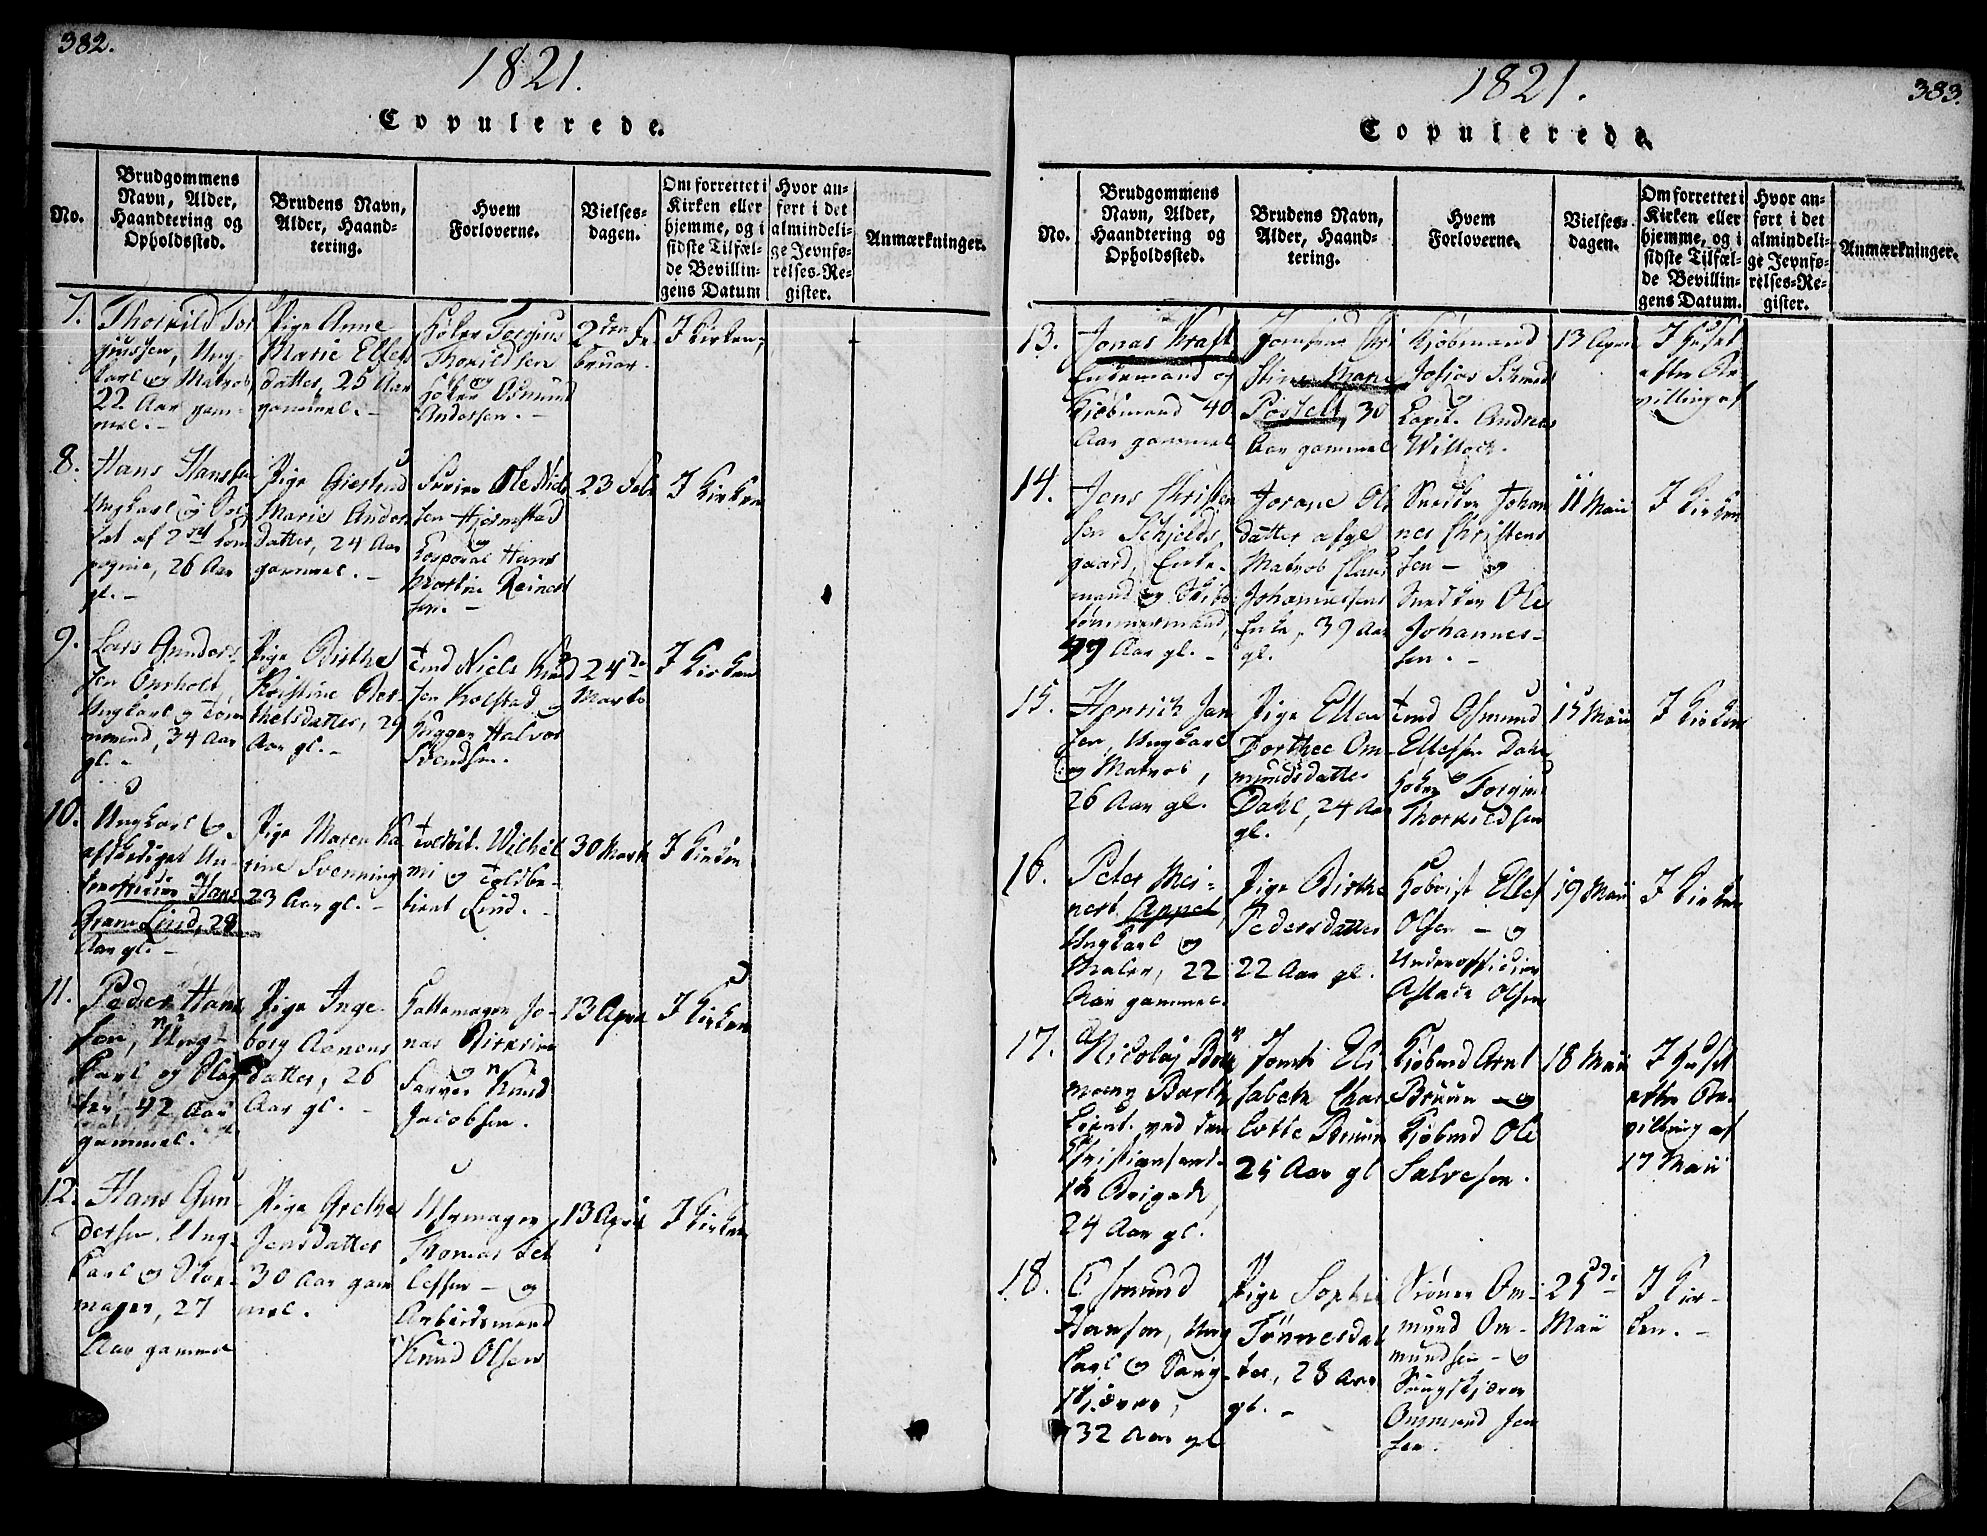 382.
1821.
Copulerede.
No.
Brudgommens
Navn, Alder,
Haandtering og
Opholdssted.
Brudens Navn,
Alder, Haand-
tering.
Hvem
Forloverne.
Vielses-
dagen.
Om forrettet i
Kirken eller
hjemme, og i
sidste Tilfæl-
de Bevillin-
gens Datum
Hvor an-
ført i det
almindeli-
ge Jevnfø-
relses-Re-
gister.
Anmærkninger.
7.
Thorkild Tor
gjussen, Ung-
karl og Matros
22 Aar gam-
mel.-
Pige Anne
Marie Ellefs
datter, 25 Aar
gammel.-
Torgius
Thorkildsen
og
Osmund
Andersen.-
2den Fe
bruar.
I Kirken,
8.
Hans Hansen
Ungkarl og Sol
dat af 2det Com
pagnie, 26 Aar
gl.-
Pige Giertrud
Marie Anders
datter, 24 Aar
gammel.-
Ole Niel
sen Hjermstad
og
Corporal Hans
Martin Reinert
sen.-
23 Feb
I Kirken
9.
Lars Gunders
sen Omholt,
Ungkarl og Tøm
mermd, 34 Aar
gl.-
Pige Birthe
Kristine Ber
thelsdatter, 29
Aar gl.-
Tmd Niels Knud
sen Kolstad og
Halvor
Svendsen.
24de
Marts
I Kirken
10.
Ungkarl og
afskediget Un-
derofficier Hans
Gram Lind, 28
Aar gl.-
Pige Maren Ka
rine Svenning
23 Aar gl.-
Wilhel
mi og Toldbe-
tient Lind.-
30 Marts
I Kirken
11.
Peder Han
sen, Ung-
karl og Slag
ter, 42 Aar
gammel.
Pige Inge
borg Aanons
datter, 26
Aar gl.-
Hattemager Jo-
nas Birkrem
og
Farver Knud
Jacobsen.
13 April
I Kirken
12.
Hans Gun
dersen, Ung-
karl og Skoe-
mager, 27
Aar gammel
Pige Grethe
Jensdatter
30 Aar gam
mel.
Uhrmager
Thomas Tel
lefsen - og
Arbeidsmand
Knud Olsen
13 April
I Kirken
383.
1821.
Copulerede.
No.
Brudgommens
Navn, Alder,
Haandtering og
Opholdssted.
Brudens Navn,
Alder, Haand-
tering.
Hvem
Forloverne.
Vielses-
dagen.
Om forrettet i
Kirken eller
hjemme, og i
sidste Tilfæl-
de Bevillin-
gens Datum.
Hvor an-
ført i det
almindeli-
ge Jevnfø-
relses-Re-
gister.
Anmærkninger.
13.
Jonas Kraft
Enkemand og
Kjøbmand 40
Aar gammel
Jomfrue Chri
stine Marie
Postell, 30
Aar gammel
Kjøbmand
Josias Schmidt
og
Capit. Andreas
Willoch.
13 April
I Huset
efter Be
villing af
14.
Jens Christen
sen Schjelds
gaard, Enke-
mand og Skibs
tømmermand,
49 Aar gl.-
Jorane Ols
datter afge
Matros Claus
Johannesens
Enke, 39 Aar
gl.
Snedker Johan
nes Christens
sen - og
Snedker Ole
Johannes-
sen.-
11 Maii
I Kirken
15.
Henrich Jan
sen, Ungkarl
og Matros,
26 Aar gl.
Pige Ellen
Dorthee Om-
mundsdatter
Dahl, 24 Aar
gl.
Tmd Osmund
Ellefsen Dahl
og
Torgius
Thorkildsen
15 Maii
I Kirken
16.
Peter Mei-
nert Appel,
Ungkarl og
Maler, 22
Aar gammel.
Pige Birthe
Pedersdatter
22 Aar gl.
Ellef
Olsen - og
Underofficier
Aslach Olsen
19 Maii
I Kirken
17.
Nicolaj
Barth
Lieut. ved den
Christiansand-
ske Brigade,
24 Aar gl.
Jomfr Eli
sabeth Char
lotte Bruun
25 Aar gl
Kjøbmd Arnt
Bruun - og
Kjøbmd Ole
Salvesen.
18 Maii
I Huset
efter Be-
villing af
17 Maii
18.
Osmund
Hansen, Ung
karl og Saug-
skjærer,
32 Aar gl
Pige Sophie
Tønnesdat
ter, 28 Aar
gl.-
Om-
mund Om-
mundsen - og
Saugskjærer
Ommund Jen
sen.
25de
Maii
I Kir-
ken.-